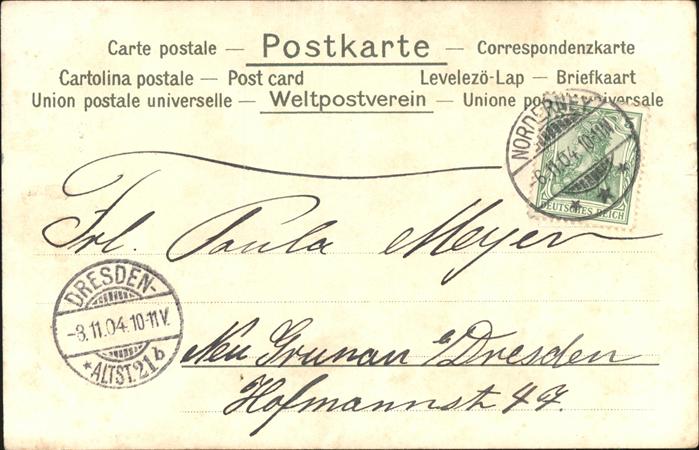 Carte postale — Postkarte — Correspondenzkarte
Cartolina postale — Post card Levelezö-Lap — Briefkaart
Union postale universelle — Weltpostverein — Unione po iversale
NORDERNEY
-6.11.04. 10-11N.
DEUTSCHES REICH
Frl. Paula Meyer
DRESDEN-
-8.11.04. 10-11V.
*ALTST. 21 b
Neu Grunau b/Dresden
Hofmannstr. 47.